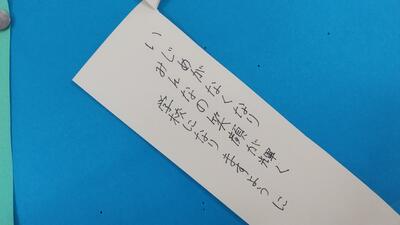 いじめがなくなり
みんなの笑顔が輝く
学校になりますように